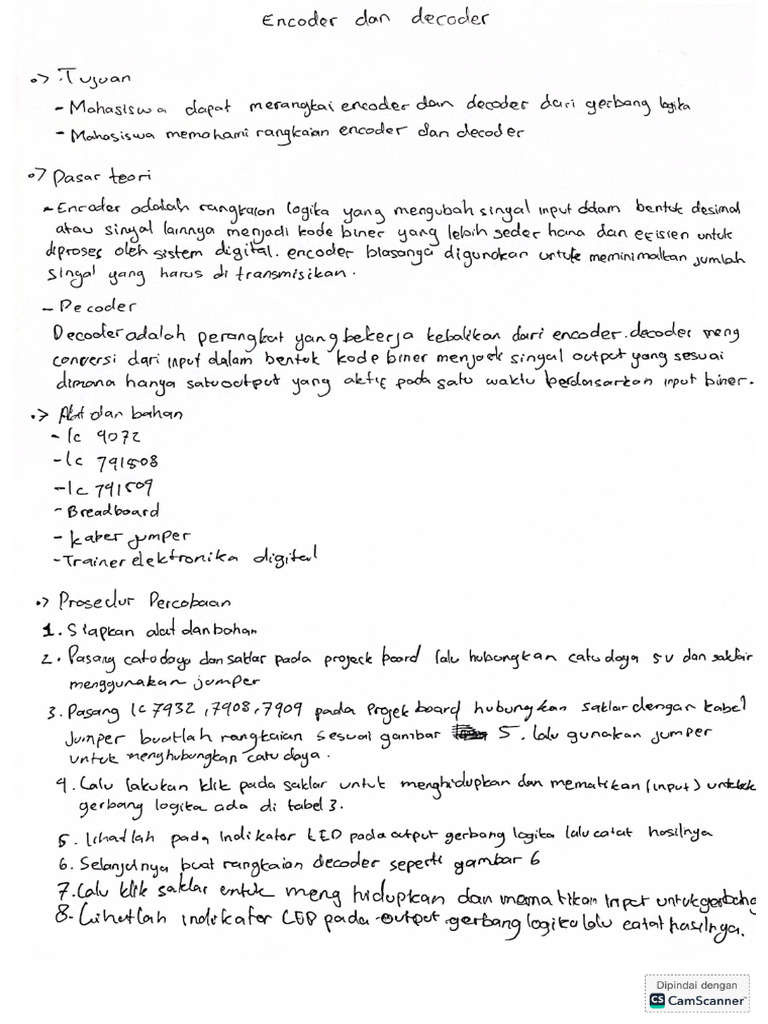 Encoder dan decoder
•> Tujuan
- Mahasiswa dapat merangkai encoder dan decoder dari gerbang logika
- Mahasiswa memahami rangkaian encoder dan decoder
•> Dasar teori
- Encoder adalah rangkaian logika yang mengubah sinyal input dalam bentuk desimal
atau sinyal lainnya menjadi kode biner yang lebih seder hana dan efisien untuk
diproses oleh sistem digital. encoder biasanya digunakan untuk meminimalkan jumlah
singal yang harus di transmisikan.
- Decoder
Decoder adalah perangkat yang bekerja kebalikan dari encoder. decoder meng
conversi dari input dalam bentuk kode biner menjadi singal output yang sesuai
dimana hanya satu output yang aktif pada satu waktu berdasarkan input biner.
•> Alat dan bahan
- Ic 4072
- Ic 74LS08
- Ic 74LS04
- Breadboard
- kaber jumper
- Trainer elektronika digital
•> Prosedur Percobaan
1. Siapkan alat dan bahan
2. Pasang catu daya dan saklar pada projeck board lalu hubungkan catu daya 5V dan saklar
menggunakan jumper
3. Pasang Ic 7432, 7408, 7404 pada Projek board hubungkan saklar dengan kabel
Jumper buatlah rangkaian sesuai gambar 5. lalu gunakan jumper
untuk menghubungkan catu daya.
4. Lalu lakukan klik pada saklar untuk menghidupkan dan mematikan (input) untuk
gerbang logika ada di tabel 3.
5. lihatlah pada Indikator LED pada output gerbang logika lalu catat hasilnya
6. Selanjutnya buat rangkaian decoder seperti gambar 6
7. Lalu klik saklar untuk meng hidupkan dan mematikan Input untuk gerbang
8. Lihatlah indikator LED pada output gerbang logika lalu catat hasilnya.
Dipindai dengan
CS CamScanner